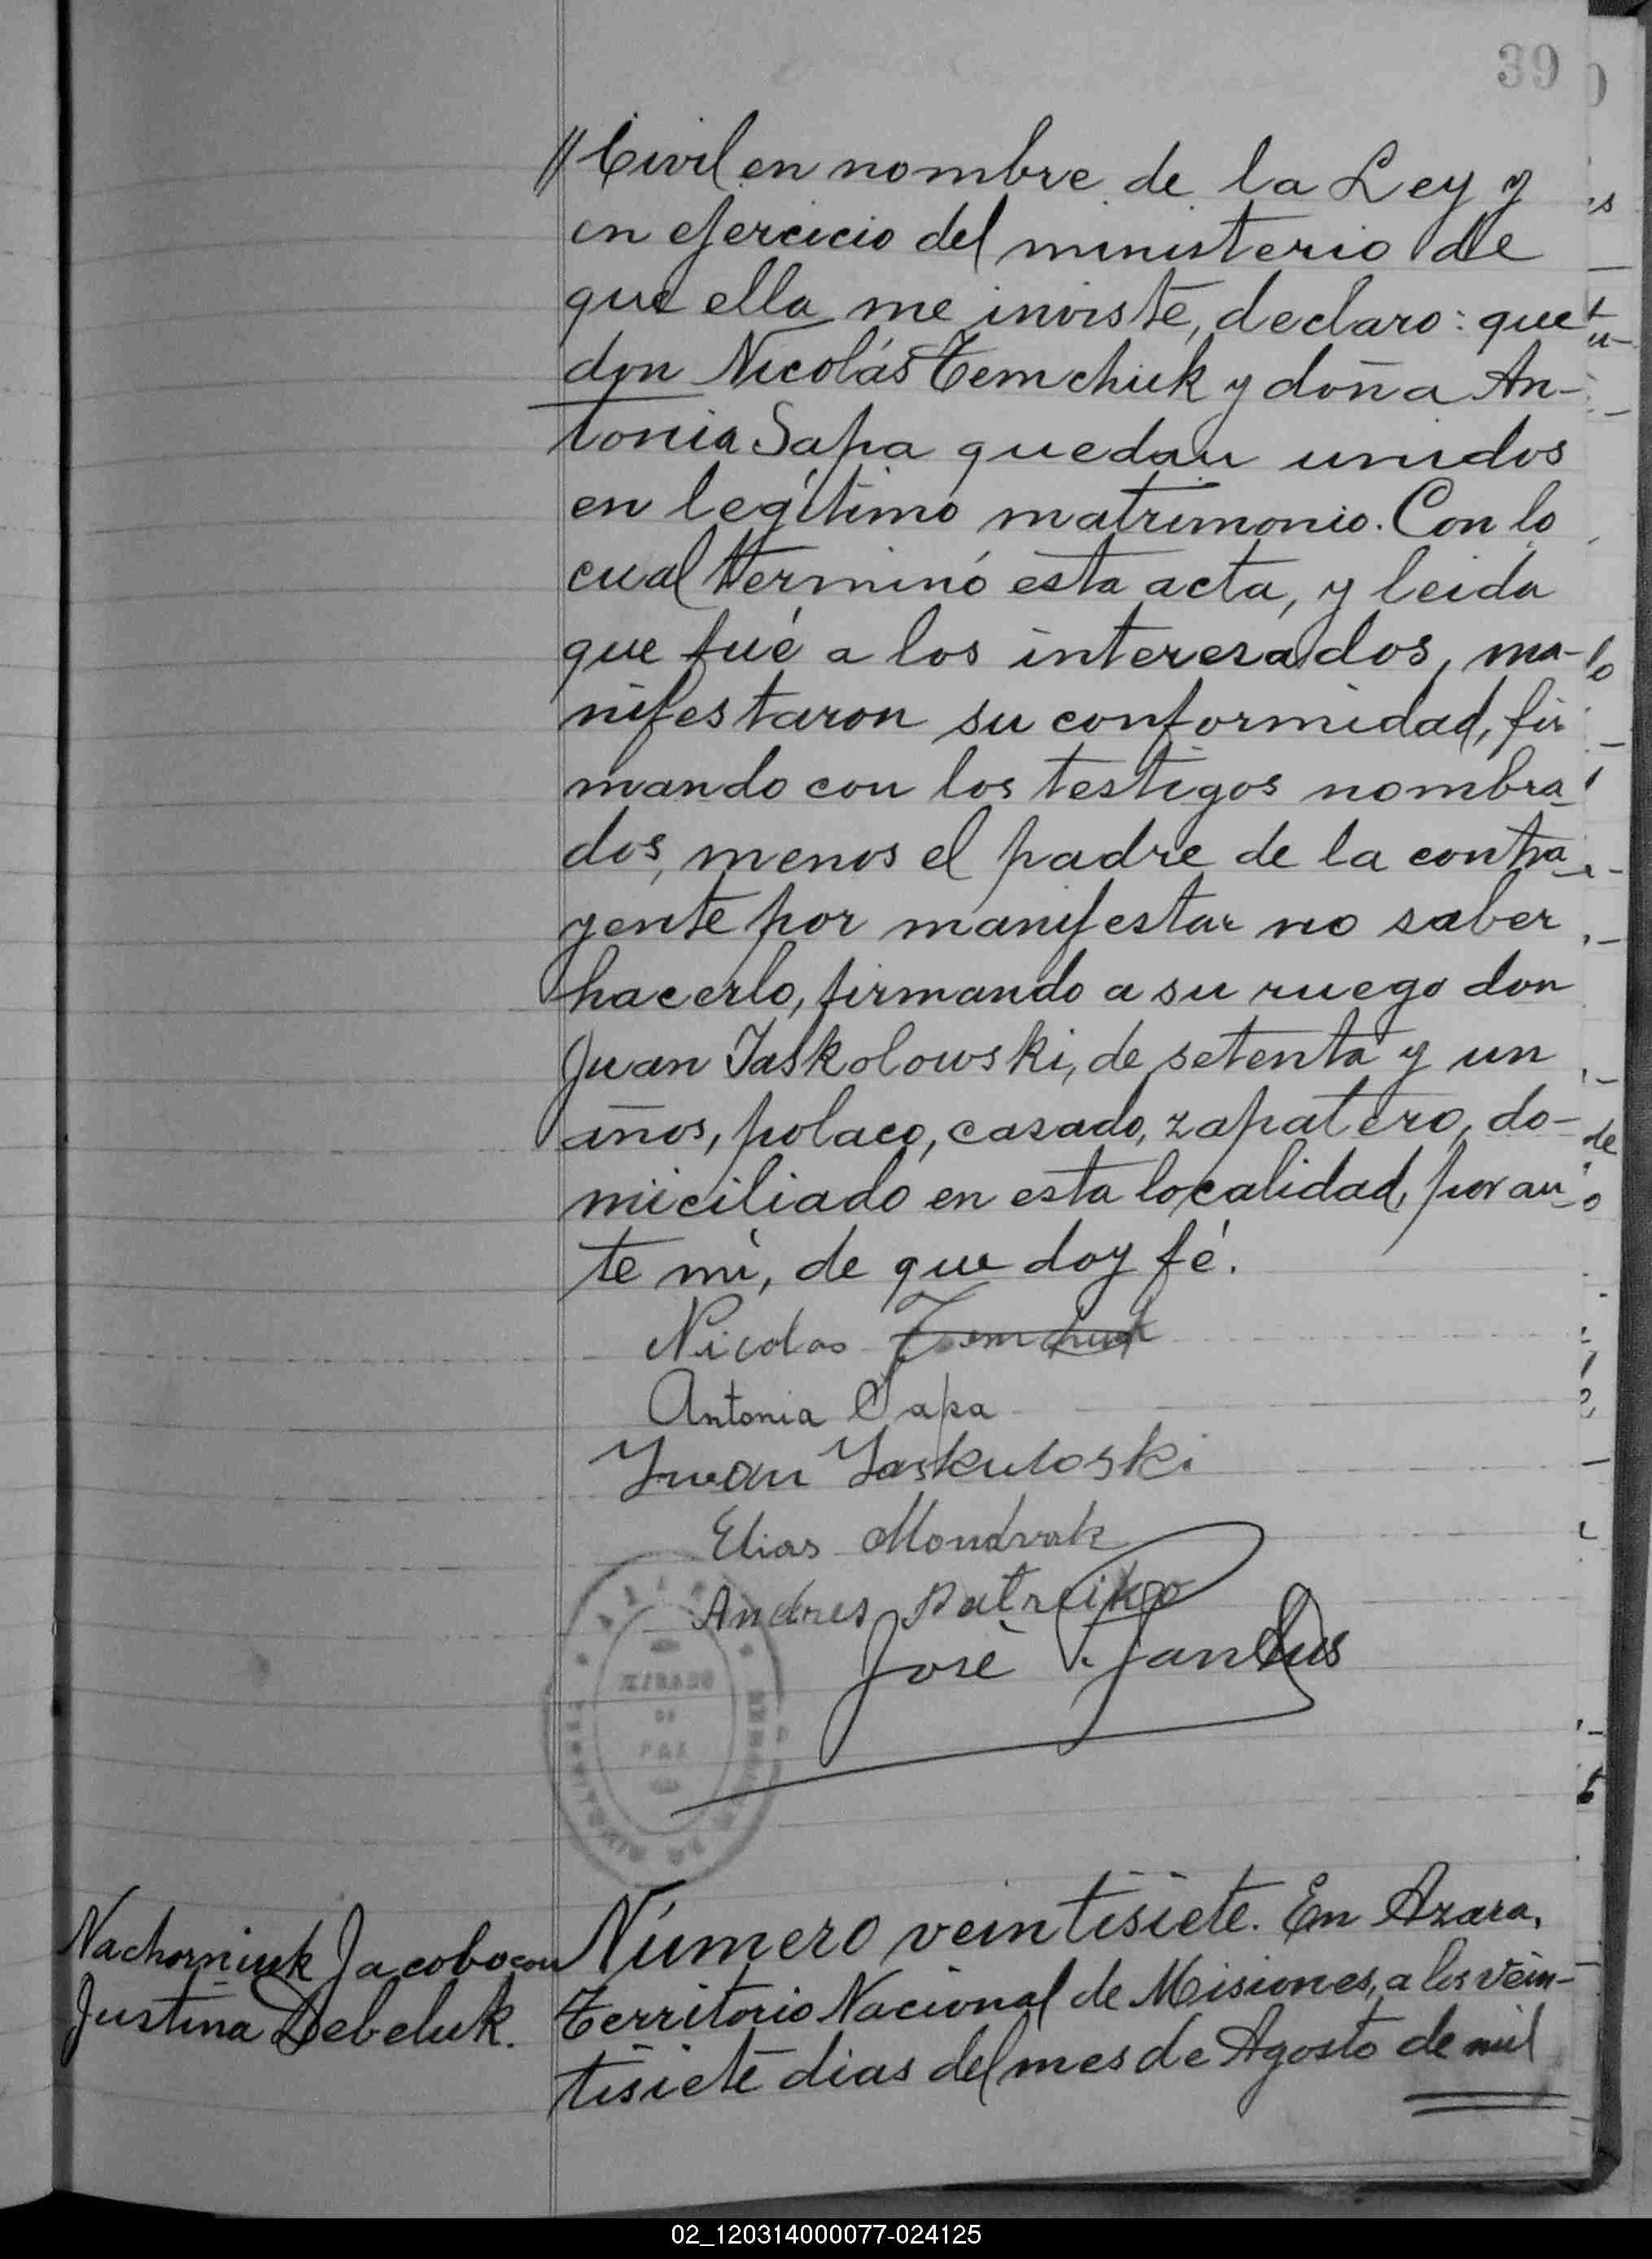 39
// Civil en nombre de la Ley y
en ejercicio del ministerio de
que ella me inviste, declaro: que
don Nicolás Temchuk y doña An-
tonia Sapa quedan unidos
en legítimo matrimonio. Con lo
cual terminó esta acta, y leida
que fué a los interesados, ma-
nifestaron su conformidad, fir
mando con los testigos nombra
dos, menos el padre de la contra
yente por manifestar no saber
hacerlo, firmando a su ruego don
Juan Jaskolowski, de setenta y un
años, polaco, casado, zapatero, do-
miciliado en esta localidad, por an
te mi, de que doy fé.
Nicolas Temchuk
Antonia Sapa
Juan Jaskuloski
Elias
Andres
José
JUZGADO
DE
PAZ
Nachorniuk Jacobo con
Justina Debeluk.
Número veintisiete. En Azara,
Territorio Nacional de Misiones, a los vein-
tisiete dias del mes de Agosto de mil
02_120314000077-024125